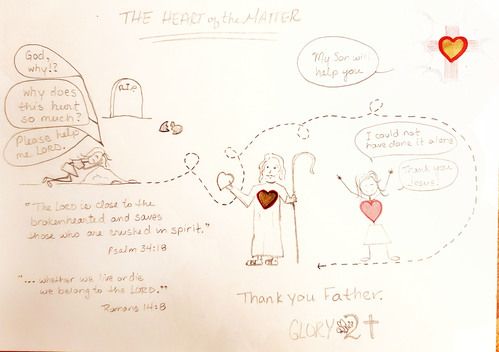 THE HEART of the MATTER
God,
why!?
why does
this hurt
so much?
Please help
me LORD.
RIP
My Son will
help you
I could not
have done it alone
Thank you
Jesus.
"The LORD is close to the
brokenhearted and saves
those who are crushed in spirit."
Psalm 34:18
"... whether we live or die
we belong to the LORD."
Romans 14:8
Thank you Father.
GLORY 2